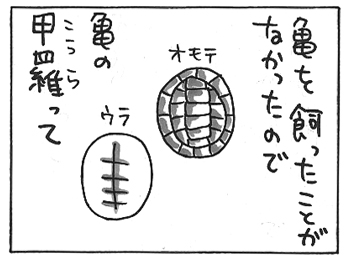 亀を飼ったことが
なかったので
オモテ
亀の
こうら
甲羅って
ウラ